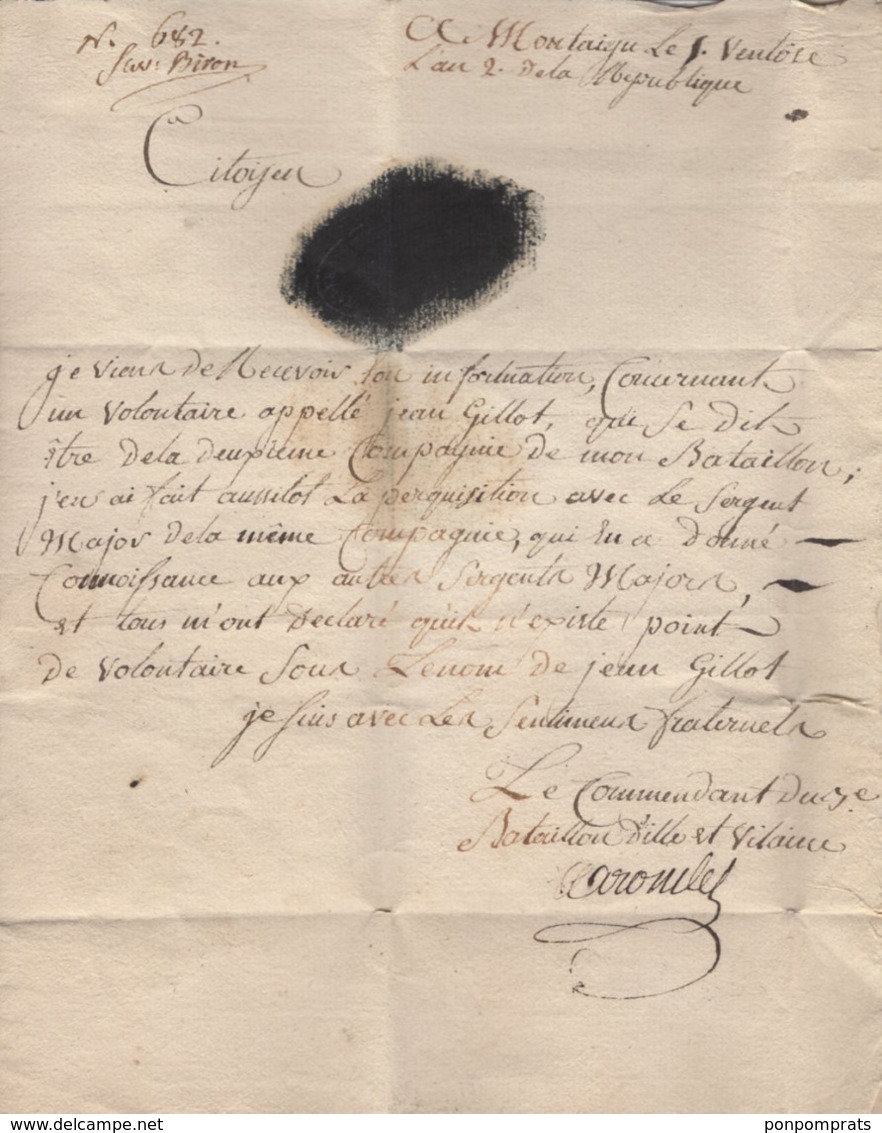 N. 682.
Biron
A Montaigu Le 1. Ventôse
L'an 2. dela République
Citoijen
je viens de Recevoir ton information, Concernant
un volontaire appellé jean Gillot, qui se dit
être dela deuxieme Compagnie de mon Bataillon;
j'en ai fait aussitot La perquisition avec Le Sergent
Major dela même Compagnie, qui En a donné
Connoissance aux autres Sergents Majors,
et tous m'ont déclaré qu'il n'existe point
de volontaire sous Lenom de jean Gillot
je suis avec Les Sentimens fraternels
Le Commendant Du
Bataillon d'ille et vilaine
ponpomprats